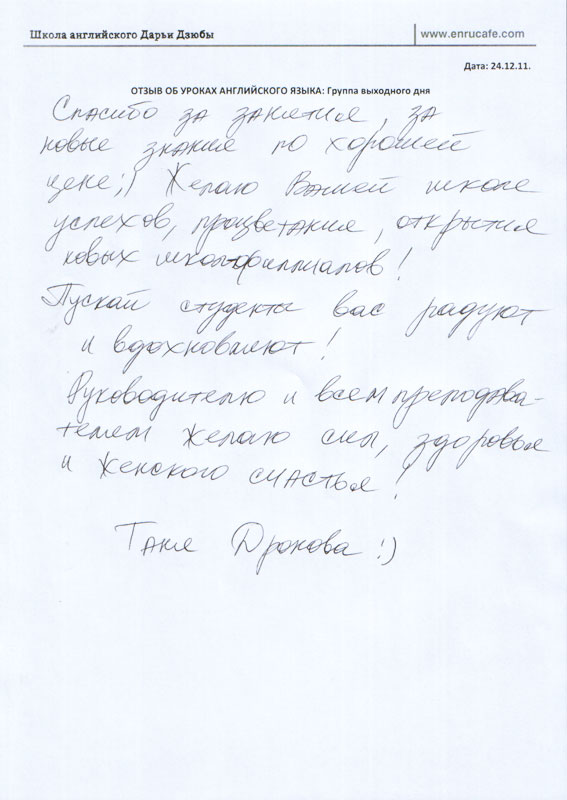 Школа английского Дарьи Дзюбы
www.enrucafe.com
Дата: 24.12.11.
ОТЗЫВ ОБ УРОКАХ АНГЛИЙСКОГО ЯЗЫКА: Группа выходного дня
Спасибо за занятия, за
новые знания по хорошей
цене;) Желаю Вашей школе
успехов, процветания, открытия
новых школ-филиалов!
Пускай студенты вас радуют
и вдохновляют!
Руководителю и всем преподава-
телям желаю сил, здоровья
и женского счастья!
Таня Дронова :)